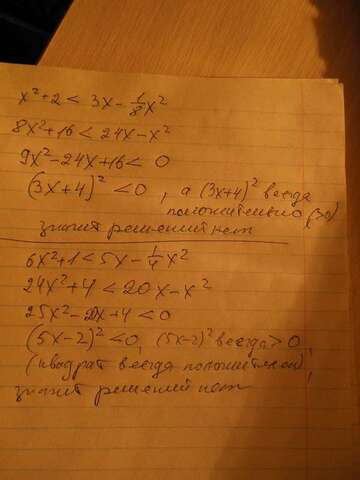 x² + 2 < 3x - 1/8 x²
8x² + 16 < 24x - x²
9x² - 24x + 16 < 0
(3x + 4)² < 0, а (3x + 4)² всегда
положительно
значит решений нет
6x² + 1 < 5x - 1/4 x²
24x² + 4 < 20x - x²
25x² - 20x + 4 < 0
(5x - 2)² < 0, (5x - 2)² всегда > 0
(квадрат всегда положителен),
значит решений нет